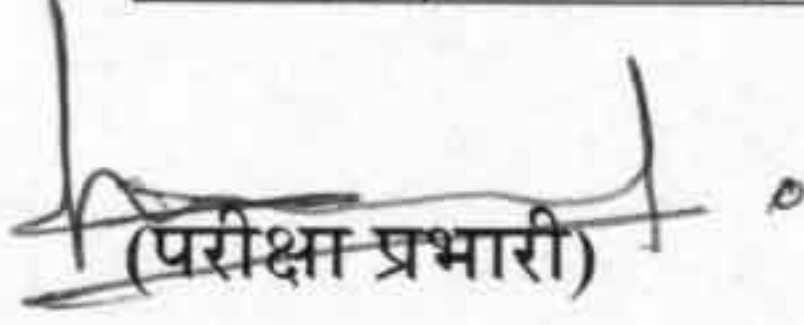 (परीक्षा प्रभारी)